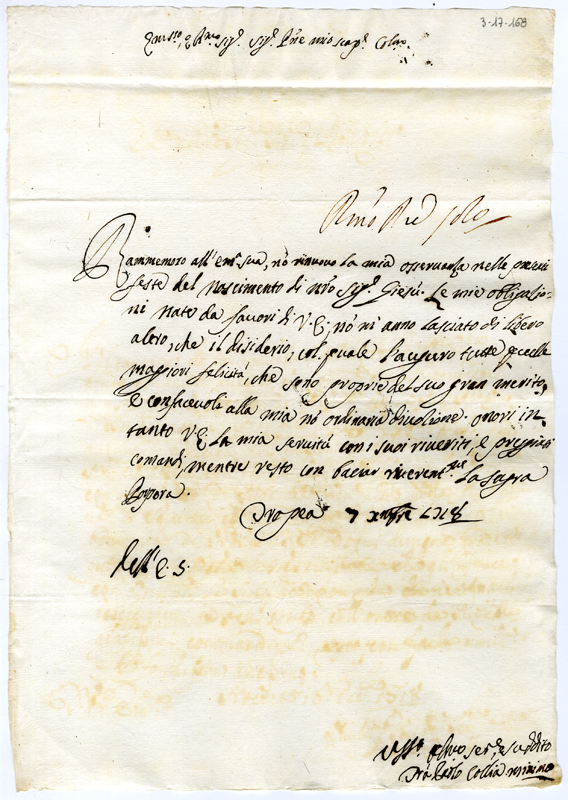 3-17-168
Em.mo, e R.mo Sig.r Sig.r P.ne mio Col.mo
Rammemoro all'em.a sua, nò rinnovo la mia osservanza nelle presenti
feste del nascimento di nr̃o Sig.r Giesù. Le mie obligazio-
ni nate da favori di V.E., nò mi anno lasciato di libero
altro, che il disiderio, col quale l'auguro tutte quelle
maggiori felicità, che sono proprie del suo gran merito,
e confacevoli alla mia nò ordinaria divozione. onori in-
tanto V.E. la mia servitù con i suoi riveriti, e pregiati
comandi, mentre resto con baciar riverent.me la sagra
Porpora.
Dropea 7 xmbre 1718
Dell'E.S.
Collia